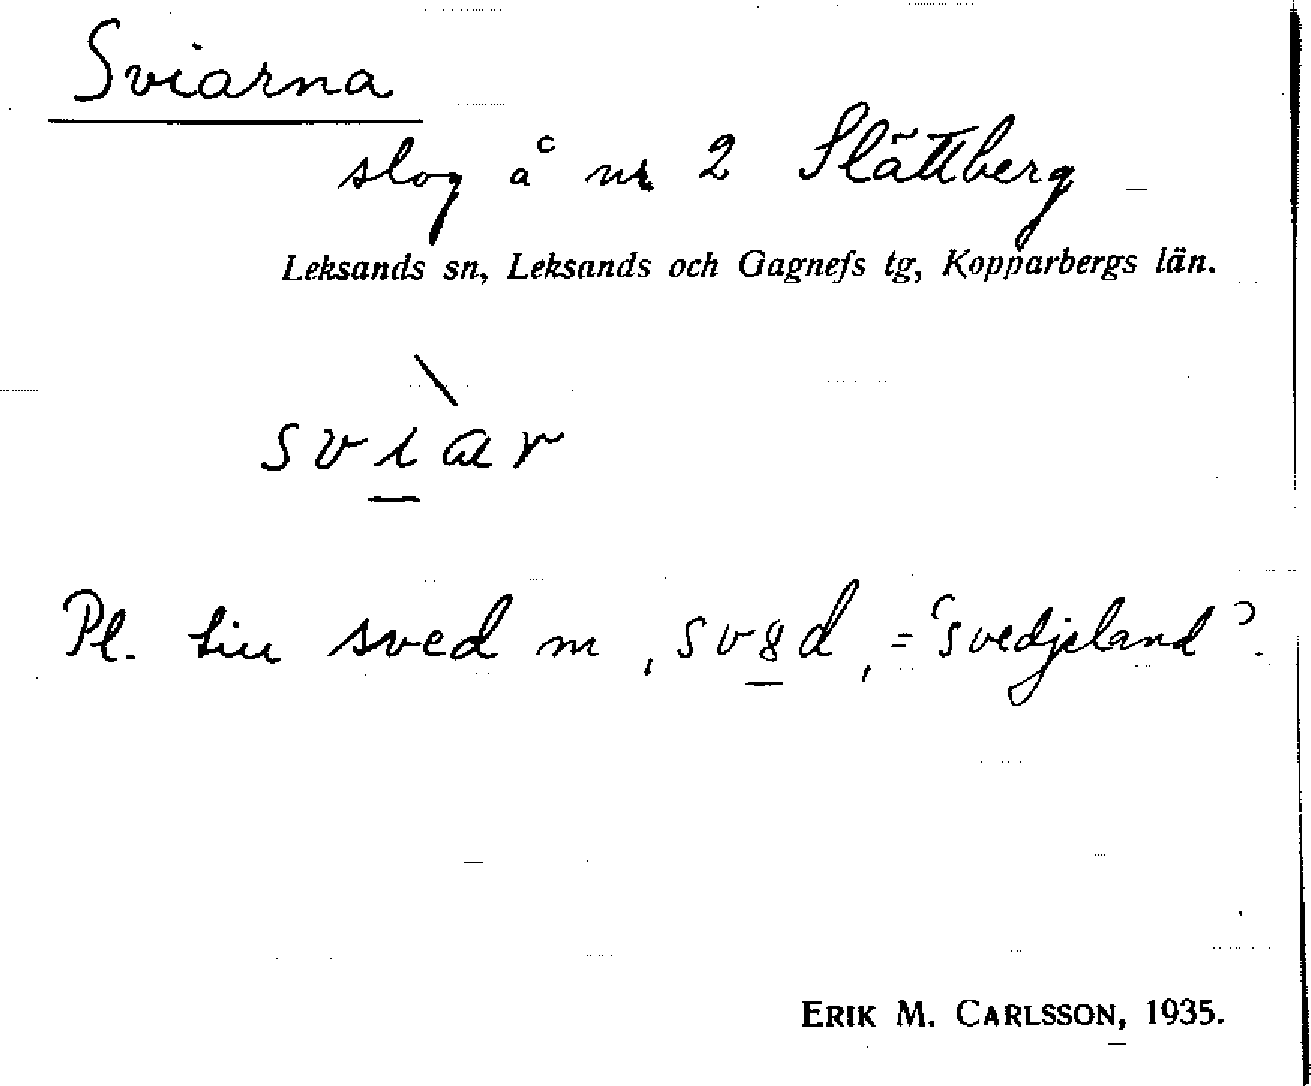 Sviarna
slog å nr 2 Slättberg
Leksands sn, Leksands och Gagnefs tg, Kopparbergs län.
sviar
Pl. till sved m, = 'svedjeland'.
ERIK M. CARLSSON, 1935.